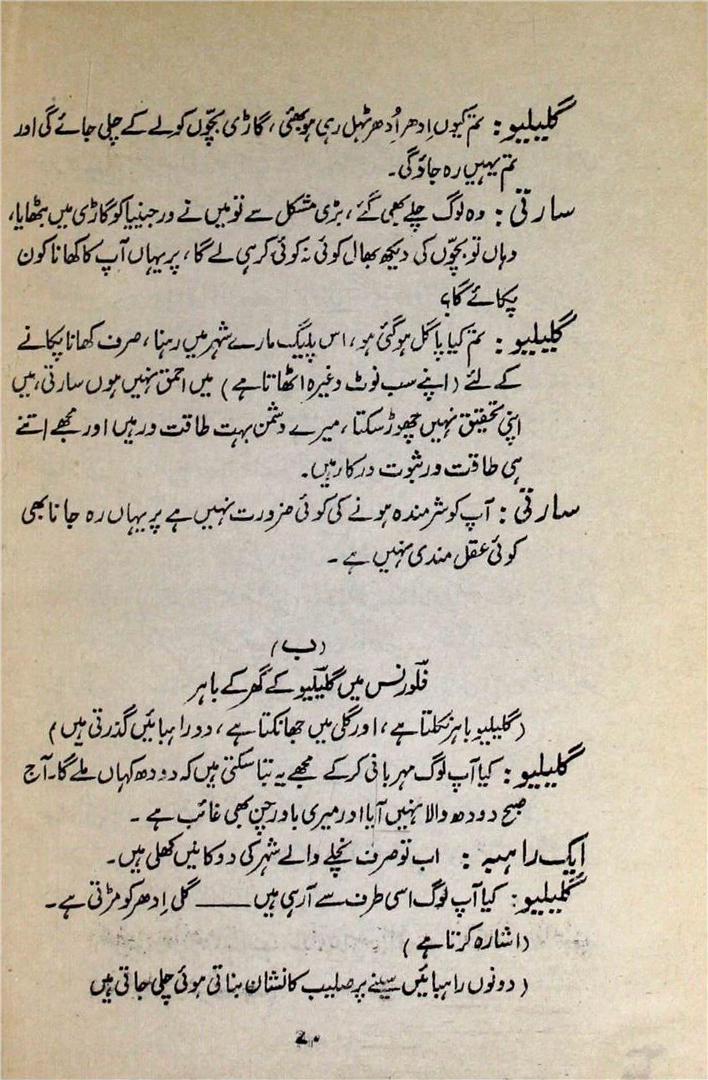 گلیلیو: تم کیوں اِدھر اُدھر ٹہل رہی ہو بھئی، گاڑی بچّوں کو لے کے چلی جائے گی اور
تم یہیں رہ جاؤ گی۔
سارتی: وہ لوگ چلے بھی گئے، بڑی مشکل سے تو میں نے ورجینیا کو گاڑی میں بٹھایا،
وہاں تو بچّوں کی دیکھ بھال کوئی نہ کوئی کر ہی لے گا، پر یہاں آپ کا کھانا کون
پکائے گا؟
گلیلیو: تم کیا پاگل ہو گئی ہو، اس پلیگ مارے شہر میں رہنا، صرف کھانا پکانے
کے لئے (اپنے سب نوٹ وغیرہ اٹھاتا ہے) میں احمق نہیں ہوں سارتی، میں
اپنی تحقیق نہیں چھوڑ سکتا، میرے دشمن بہت طاقت ور ہیں اور مجھے اتنے
ہی طاقت ور ثبوت درکار ہیں۔
سارتی: آپ کو شرمندہ ہونے کی کوئی ضرورت نہیں ہے پر یہاں رہ جانا بھی
کوئی عقل مندی نہیں ہے۔
(ب)
فلورنس میں گلیلیو کے گھر کے باہر
(گلیلیو باہر نکلتا ہے، اور گلی میں جھانکتا ہے، دو راہبائیں گذرتی ہیں)
گلیلیو: کیا آپ لوگ مہربانی کر کے مجھے یہ بتا سکتی ہیں کہ دودھ کہاں ملے گا۔ آج
صبح دودھ والا نہیں آیا اور میری باورچن بھی غائب ہے۔
ایک راہبہ: اب تو صرف نچلے والے شہر کی دوکانیں کھلی ہیں۔
گلیلیو: کیا آپ لوگ اسی طرف سے آرہی ہیں ــــــ گلی اِدھر کو مڑتی ہے۔
(اشارہ کرتا ہے)
(دونوں راہبائیں سینے پر صلیب کا نشان بناتی ہوئی چلی جاتی ہیں